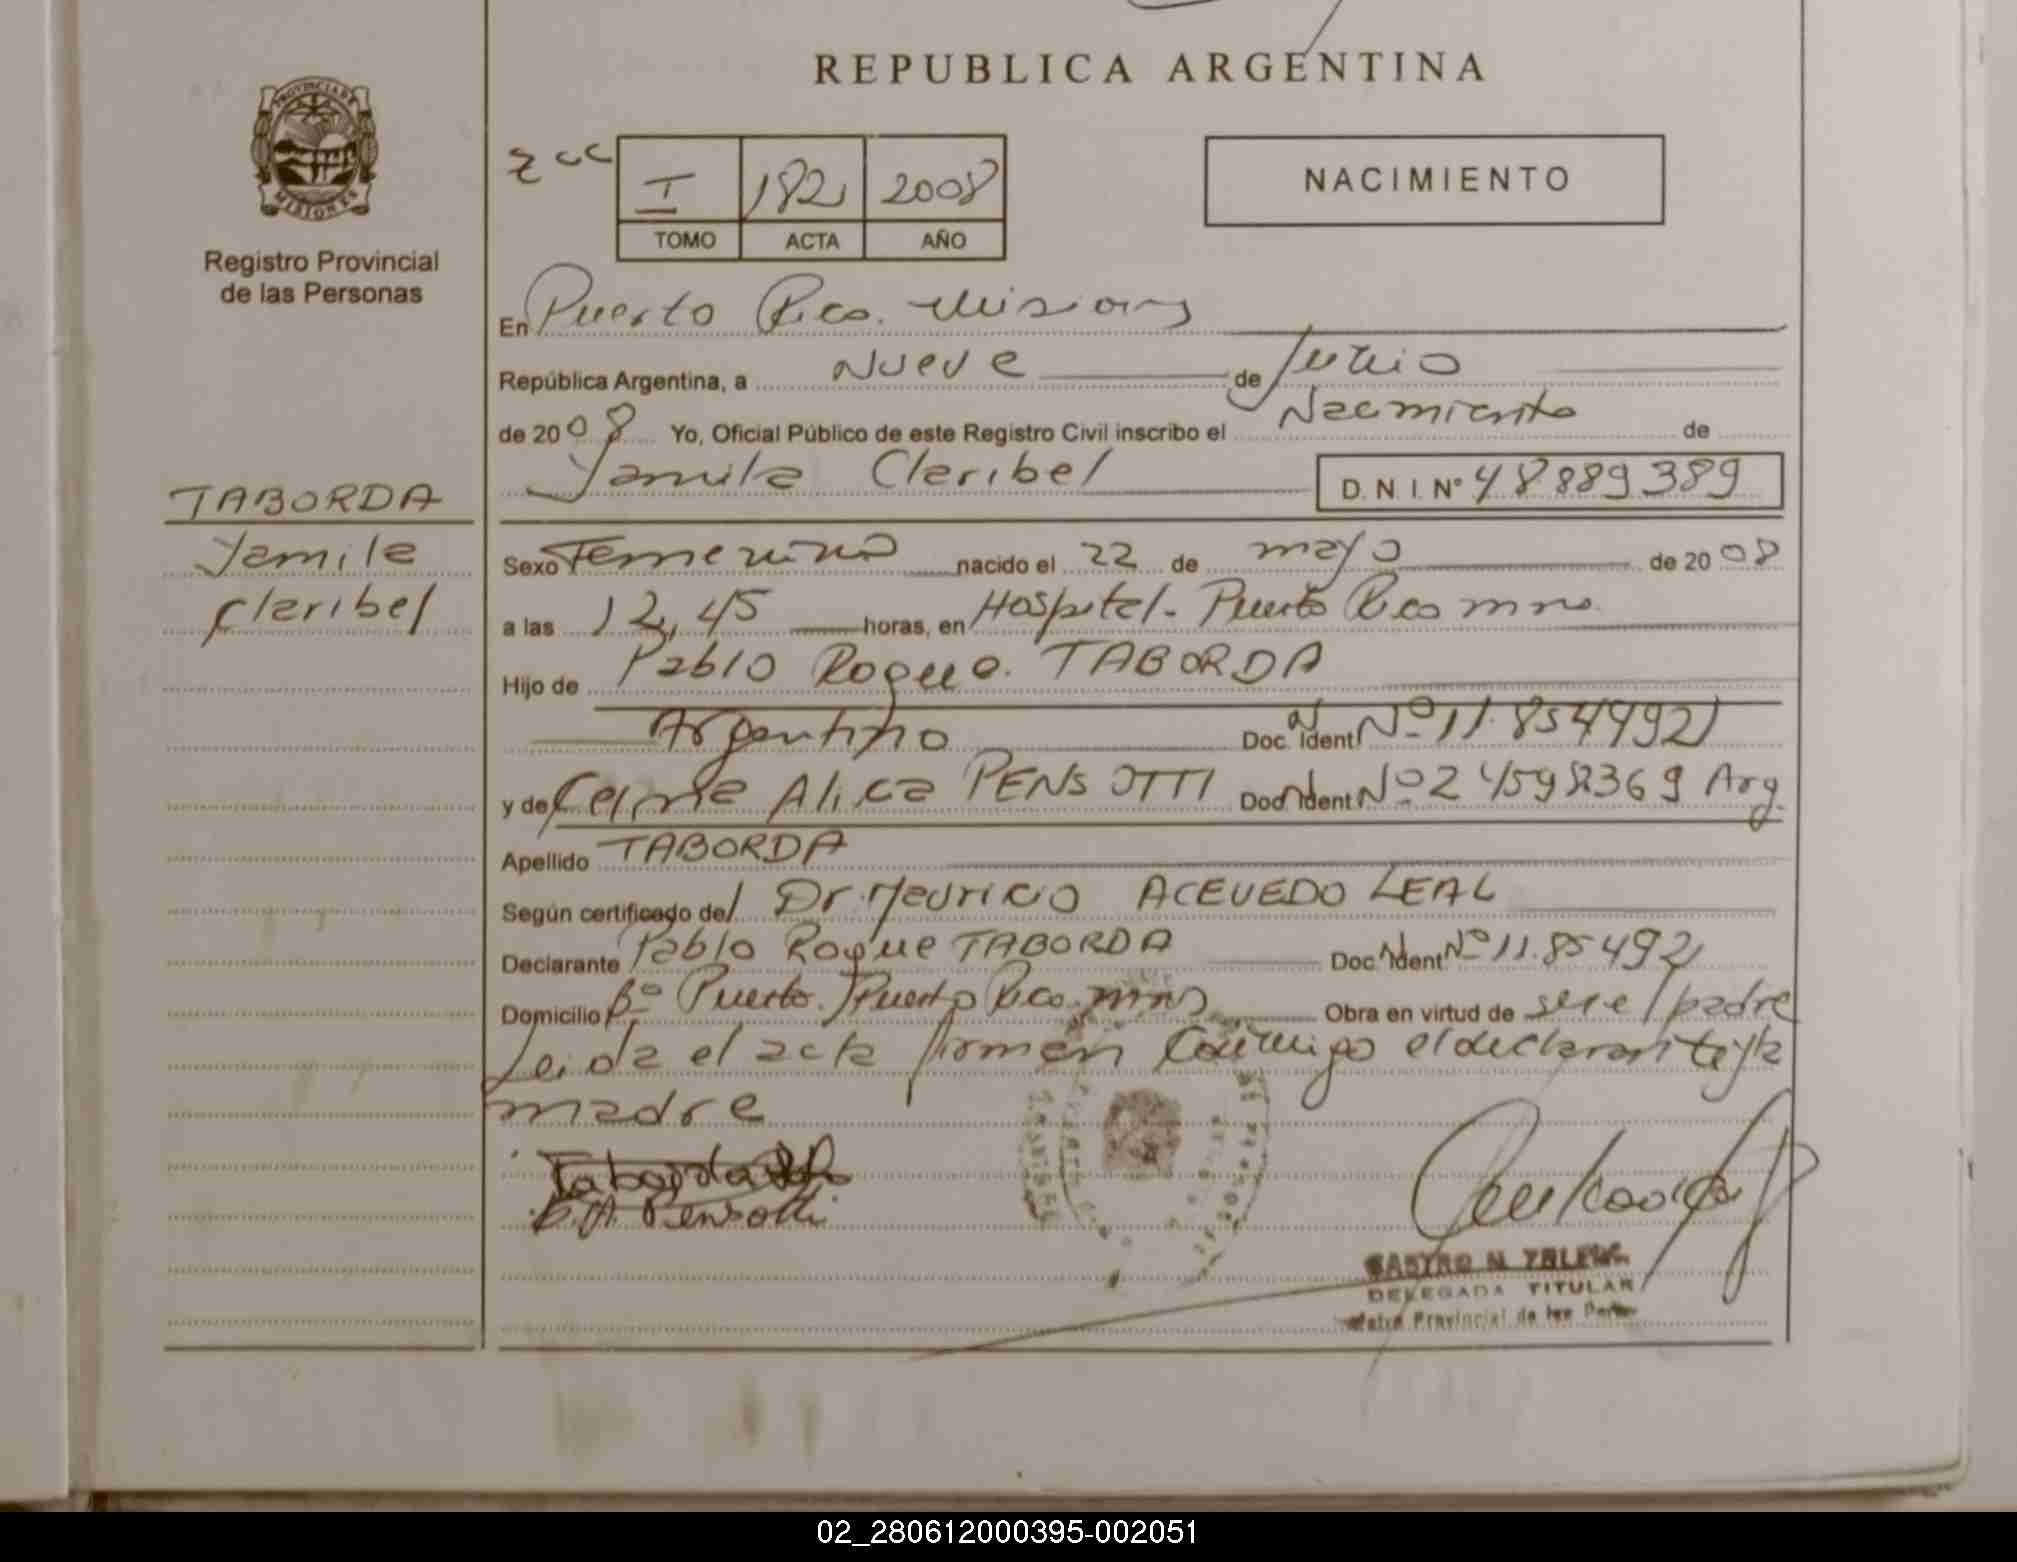 REPUBLICA ARGENTINA
PROVINCIA DE
MISIONES
Registro Provincial
de las Personas
I 182 2008
TOMO ACTA AÑO
NACIMIENTO
En Puerto Rico. Misiones
República Argentina, a Nueve de Junio
de 2008 Yo, Oficial Público de este Registro Civil inscribo el Nacimiento de
Yamila Claribel D.N.I. Nº 48889389
TABORDA
Yamila
Claribel
Sexo Femenino nacido el 22 de mayo de 2008
a las 12,45 horas, en Hospital - Puerto Rico mns.
Hijo de Pablo Roque. TABORDA
Argentino Doc. N. Ident. Nº
y de Alicia PENSOTTI Doc. N. Ident. Nº Arg.
Apellido TABORDA
Según certificado del Dr. Mauricio ACEVEDO LEAL
Declarante Pablo Roque TABORDA Doc. N. Ident. Nº 11.854921
Domicilio Bº Puerto. Puerto Rico. mns Obra en virtud de ser el padre
Leida el acta firman conmigo el declarante y la
madre
Taborda
Pensotti
DELEGADA TITULAR
Provincial de las
02_280612000395-002051